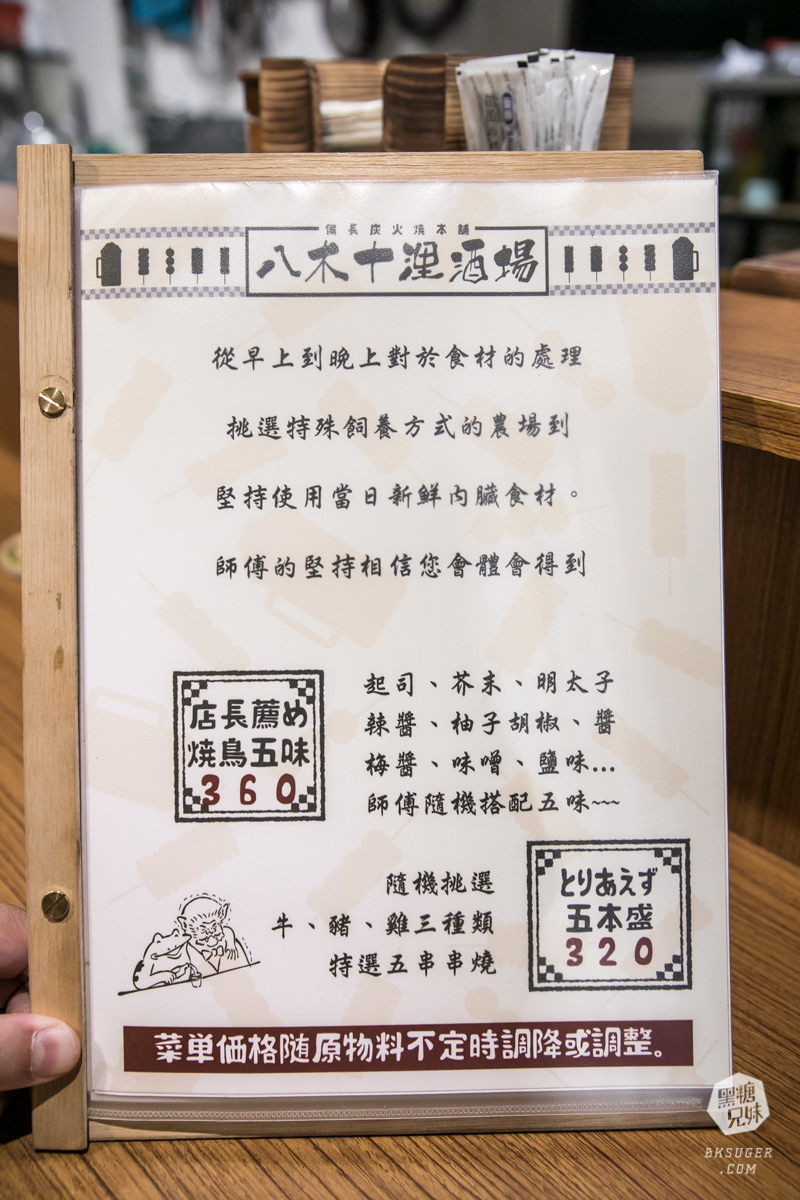 備長炭火燒本舖
八木十浬酒場
從早上到晚上對於食材的處理
挑選特殊飼養方式的農場到
堅持使用當日新鮮內臟食材。
師傅的堅持相信您會體會得到
店長薦め
焼鳥五味
360
起司、芥末、明太子
辣醬、柚子胡椒、醬
梅醬、味噌、鹽味...
師傅隨機搭配五味~~~
隨機挑選
牛、豬、雞三種類
特選五串串燒
とりあえず
五本盛
320
菜単価格随原物料不定時調降或調整。
黑糖
兄妹
BKSUGER
.COM